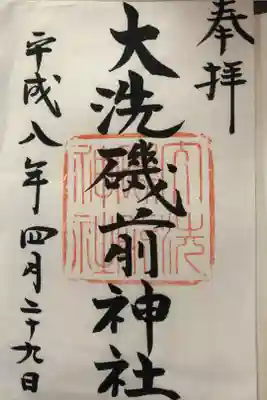 奉拝
大洗磯前神社
平成八年四月二十九日
大洗磯前神社